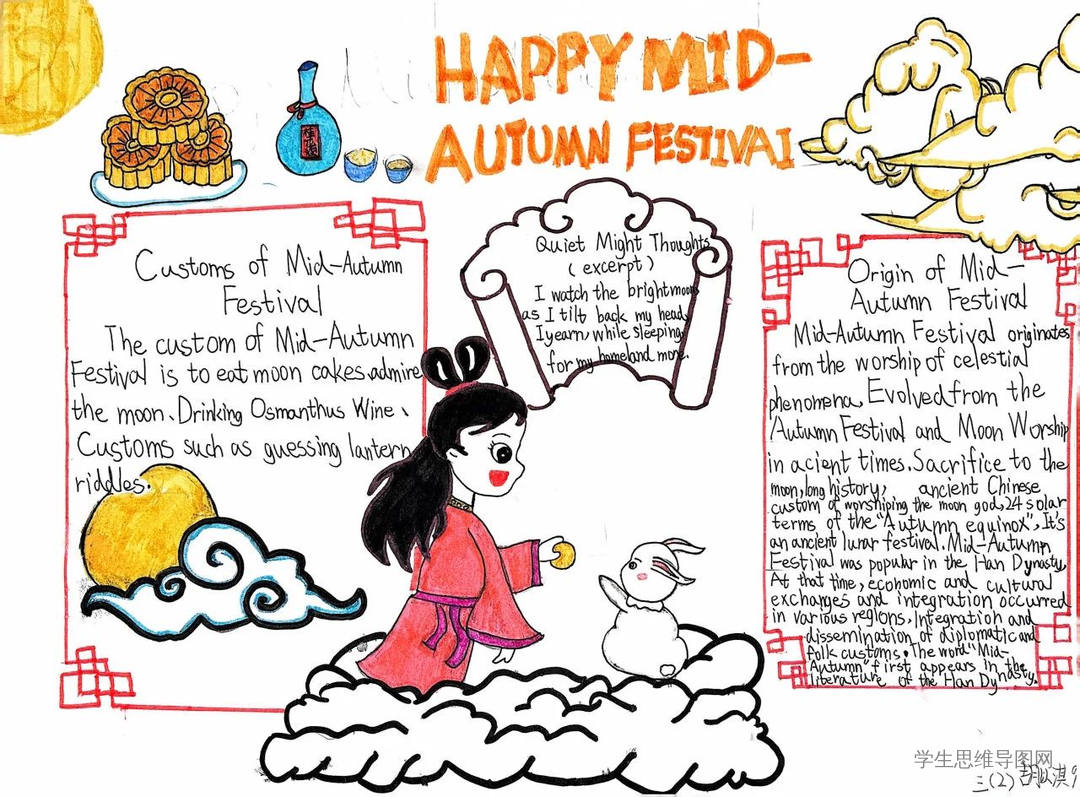 HAPPY MID-
AUTUMN FESTIVAI
Customs of Mid-Autumn
Festival
The custom of Mid-Autumn
Festival is to eat moon cakes、admire
the moon、Drinking Osmanthus Wine、
Customs such as guessing lantern
riddles.
Quiet Might Thoughts
(excerpt)
I watch the bright moon
as I tilt back my head,
I yearn while sleeping
for my homeland more.
Origin of Mid-
Autumn Festival
Mid-Autumn Festival originates
from the worship of celestial
phenomena, Evolved from the
Autumn Festival and Moon Worship
in acient times. Sacrifice to the
moon, long history, ancient Chinese
custom of worshiping the moon god, 24 solar
terms of the "Autumn equinox". It's
an ancient lunar festival. Mid-Autumn
Festival was popular in the Han Dynasty,
At that time, economic and cultural
exchanges and integration occurred
in various regions, Integration and
dissemination of diplomatic and
folk customs. The word "Mid-
Autumn" first appears in the
literature of the Han Dynasty.
学生思维导图网
三(2)